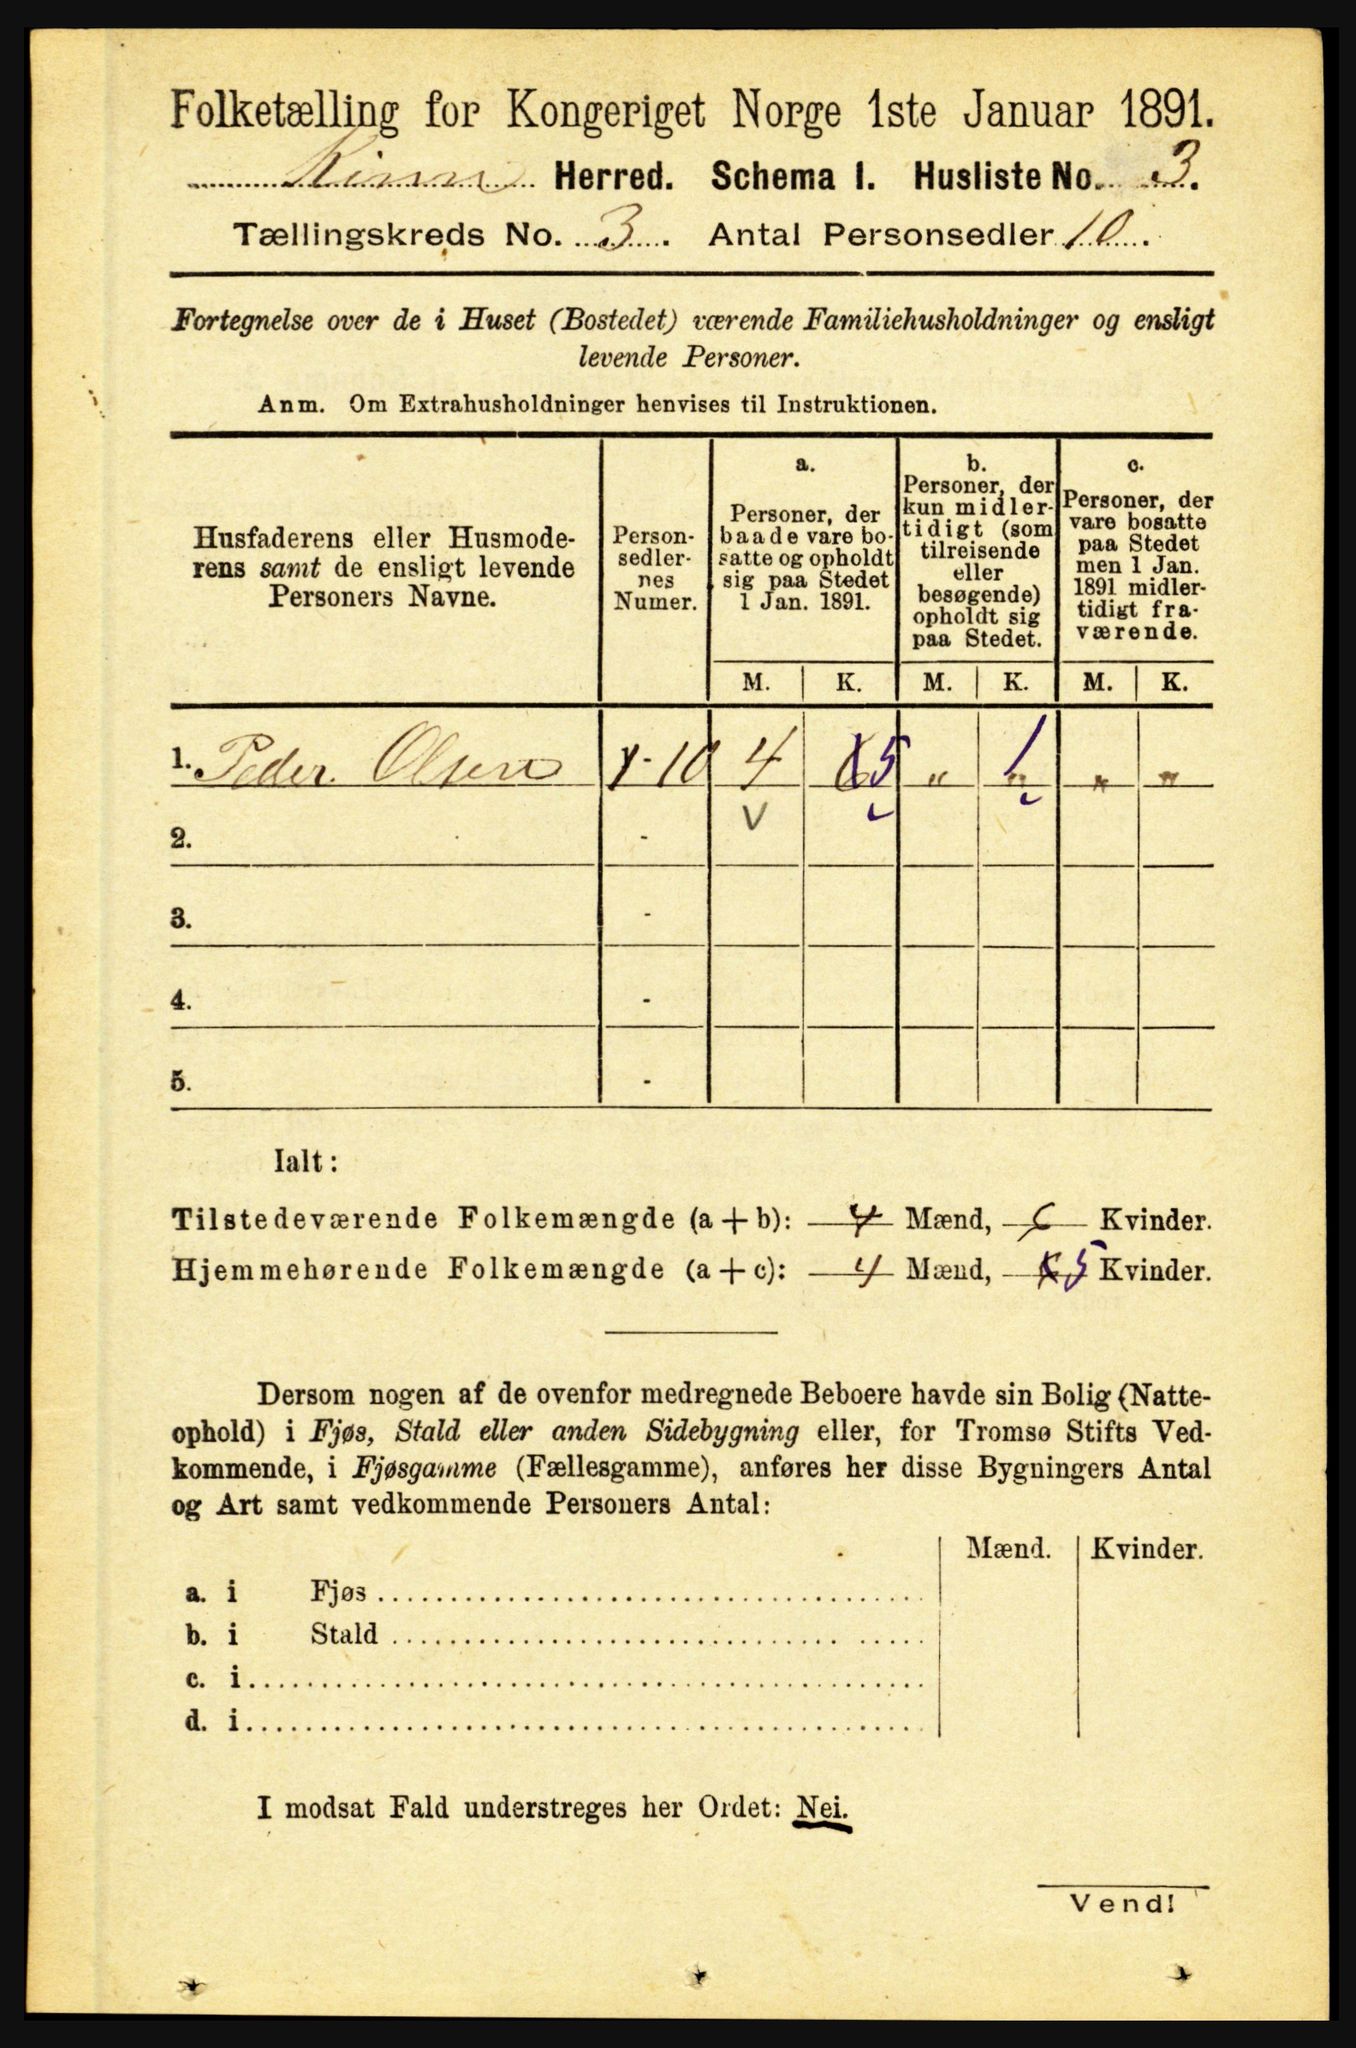 Folketælling for Kongeriget Norge 1ste Januar 1891.
Kinn Herred. Schema I. Husliste No. 3.
Tællingskreds No. 3. Antal Personsedler 10.
Fortegnelse over de i Huset (Bostedet) værende Familiehusholdninger og ensligt
levende Personer.
Anm. Om Extrahusholdninger henvises til Instruktionen.
Husfaderens eller Husmode-
rens samt de ensligt levende
Personers Navne.
Person-
sedler-
nes
Numer.
a.
Personer, der
baade vare bo-
satte og opholdt
sig paa Stedet
1 Jan. 1891.
b.
Personer, der
kun midler-
tidigt (som
tilreisende
eller
besøgende)
opholdt sig
paa Stedet.
c.
Personer, der
vare bosatte
paa Stedet
men 1 Jan.
1891 midler-
tidigt fra-
værende.
M. K. M. K. M. K.
1. Peder Olsen 1-10 4 6 5 " 1 " "
2. -
3. -
4. -
5. -
Ialt:
Tilstedeværende Folkemængde (a + b): 4 Mænd, 6 Kvinder.
Hjemmehørende Folkemængde (a + c): 4 Mænd, 6 5 Kvinder.
Dersom nogen af de ovenfor medregnede Beboere havde sin Bolig (Natte-
ophold) i Fjøs, Stald eller anden Sidebygning eller, for Tromsø Stifts Ved-
kommende, i Fjøsgamme (Fællesgamme), anføres her disse Bygningers Antal
og Art samt vedkommende Personers Antal:
Mænd. Kvinder.
a. i Fjøs
b. i Stald
c. i
d. i
I modsat Fald understreges her Ordet: Nei.
Vend!